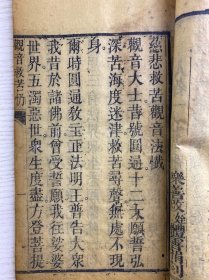 慈悲救苦觀音法懺
觀音大士善號圓通十二大願誓弘
深苦海度迷津救苦尋聲無處不現
身
爾時圓通教主正法明王普告大眾
我昔於諸佛前曾受誓願我往娑婆
世界五濁惡世衆生度盡方登菩提
觀音救苦